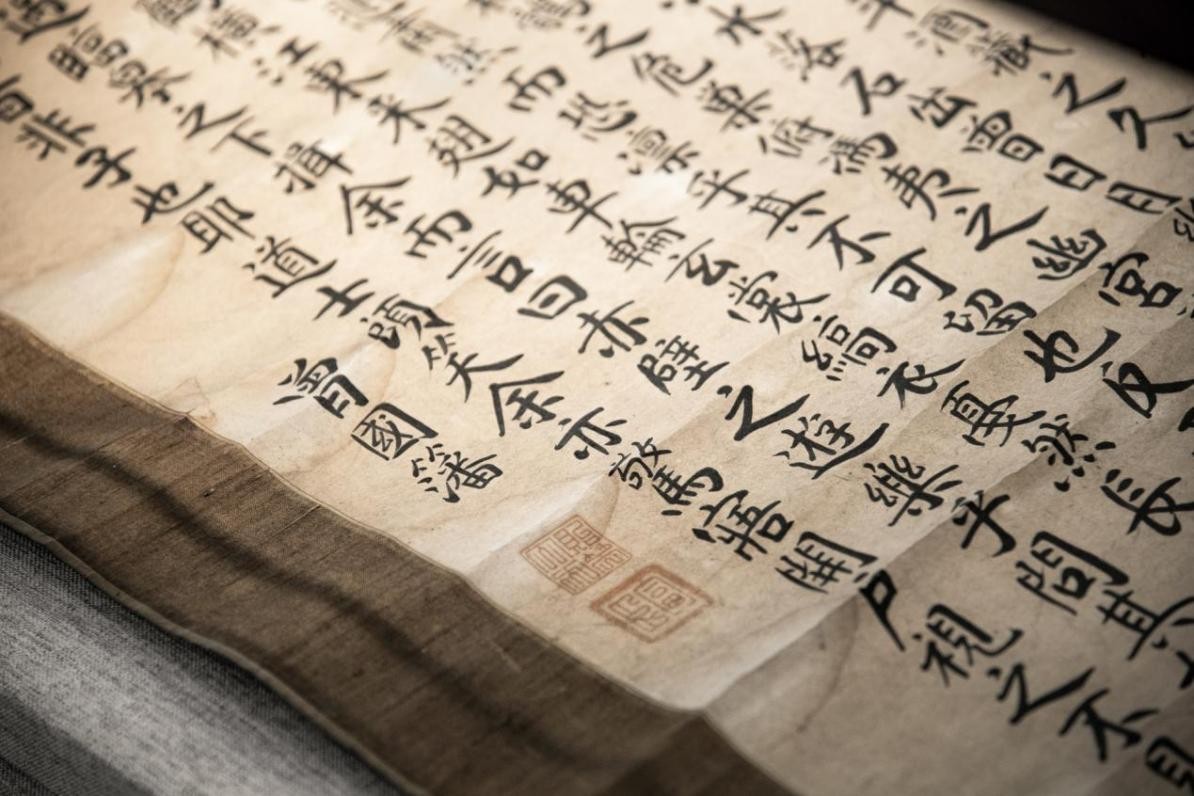 斗酒藏之久
水落石出曾日月
鶻之危巢俯馮夷之幽宮
肅然而恐凜乎其不可留也反
橫江東來翅如車輪玄裳縞衣戛然長
臨皋之下揖余而言曰赤壁之遊樂乎問其
非子也耶道士顧笑余亦驚寤開戶視之不見
曾國藩